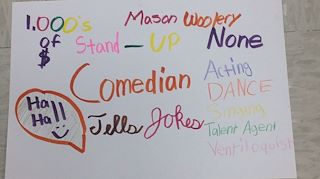 1,000's of $
Mason Woolery
Stand-UP
None
Comedian
Acting
DANCE
Singing
Talent Agent
Ventiloquist
Ha Ha!!
Tells Jokes